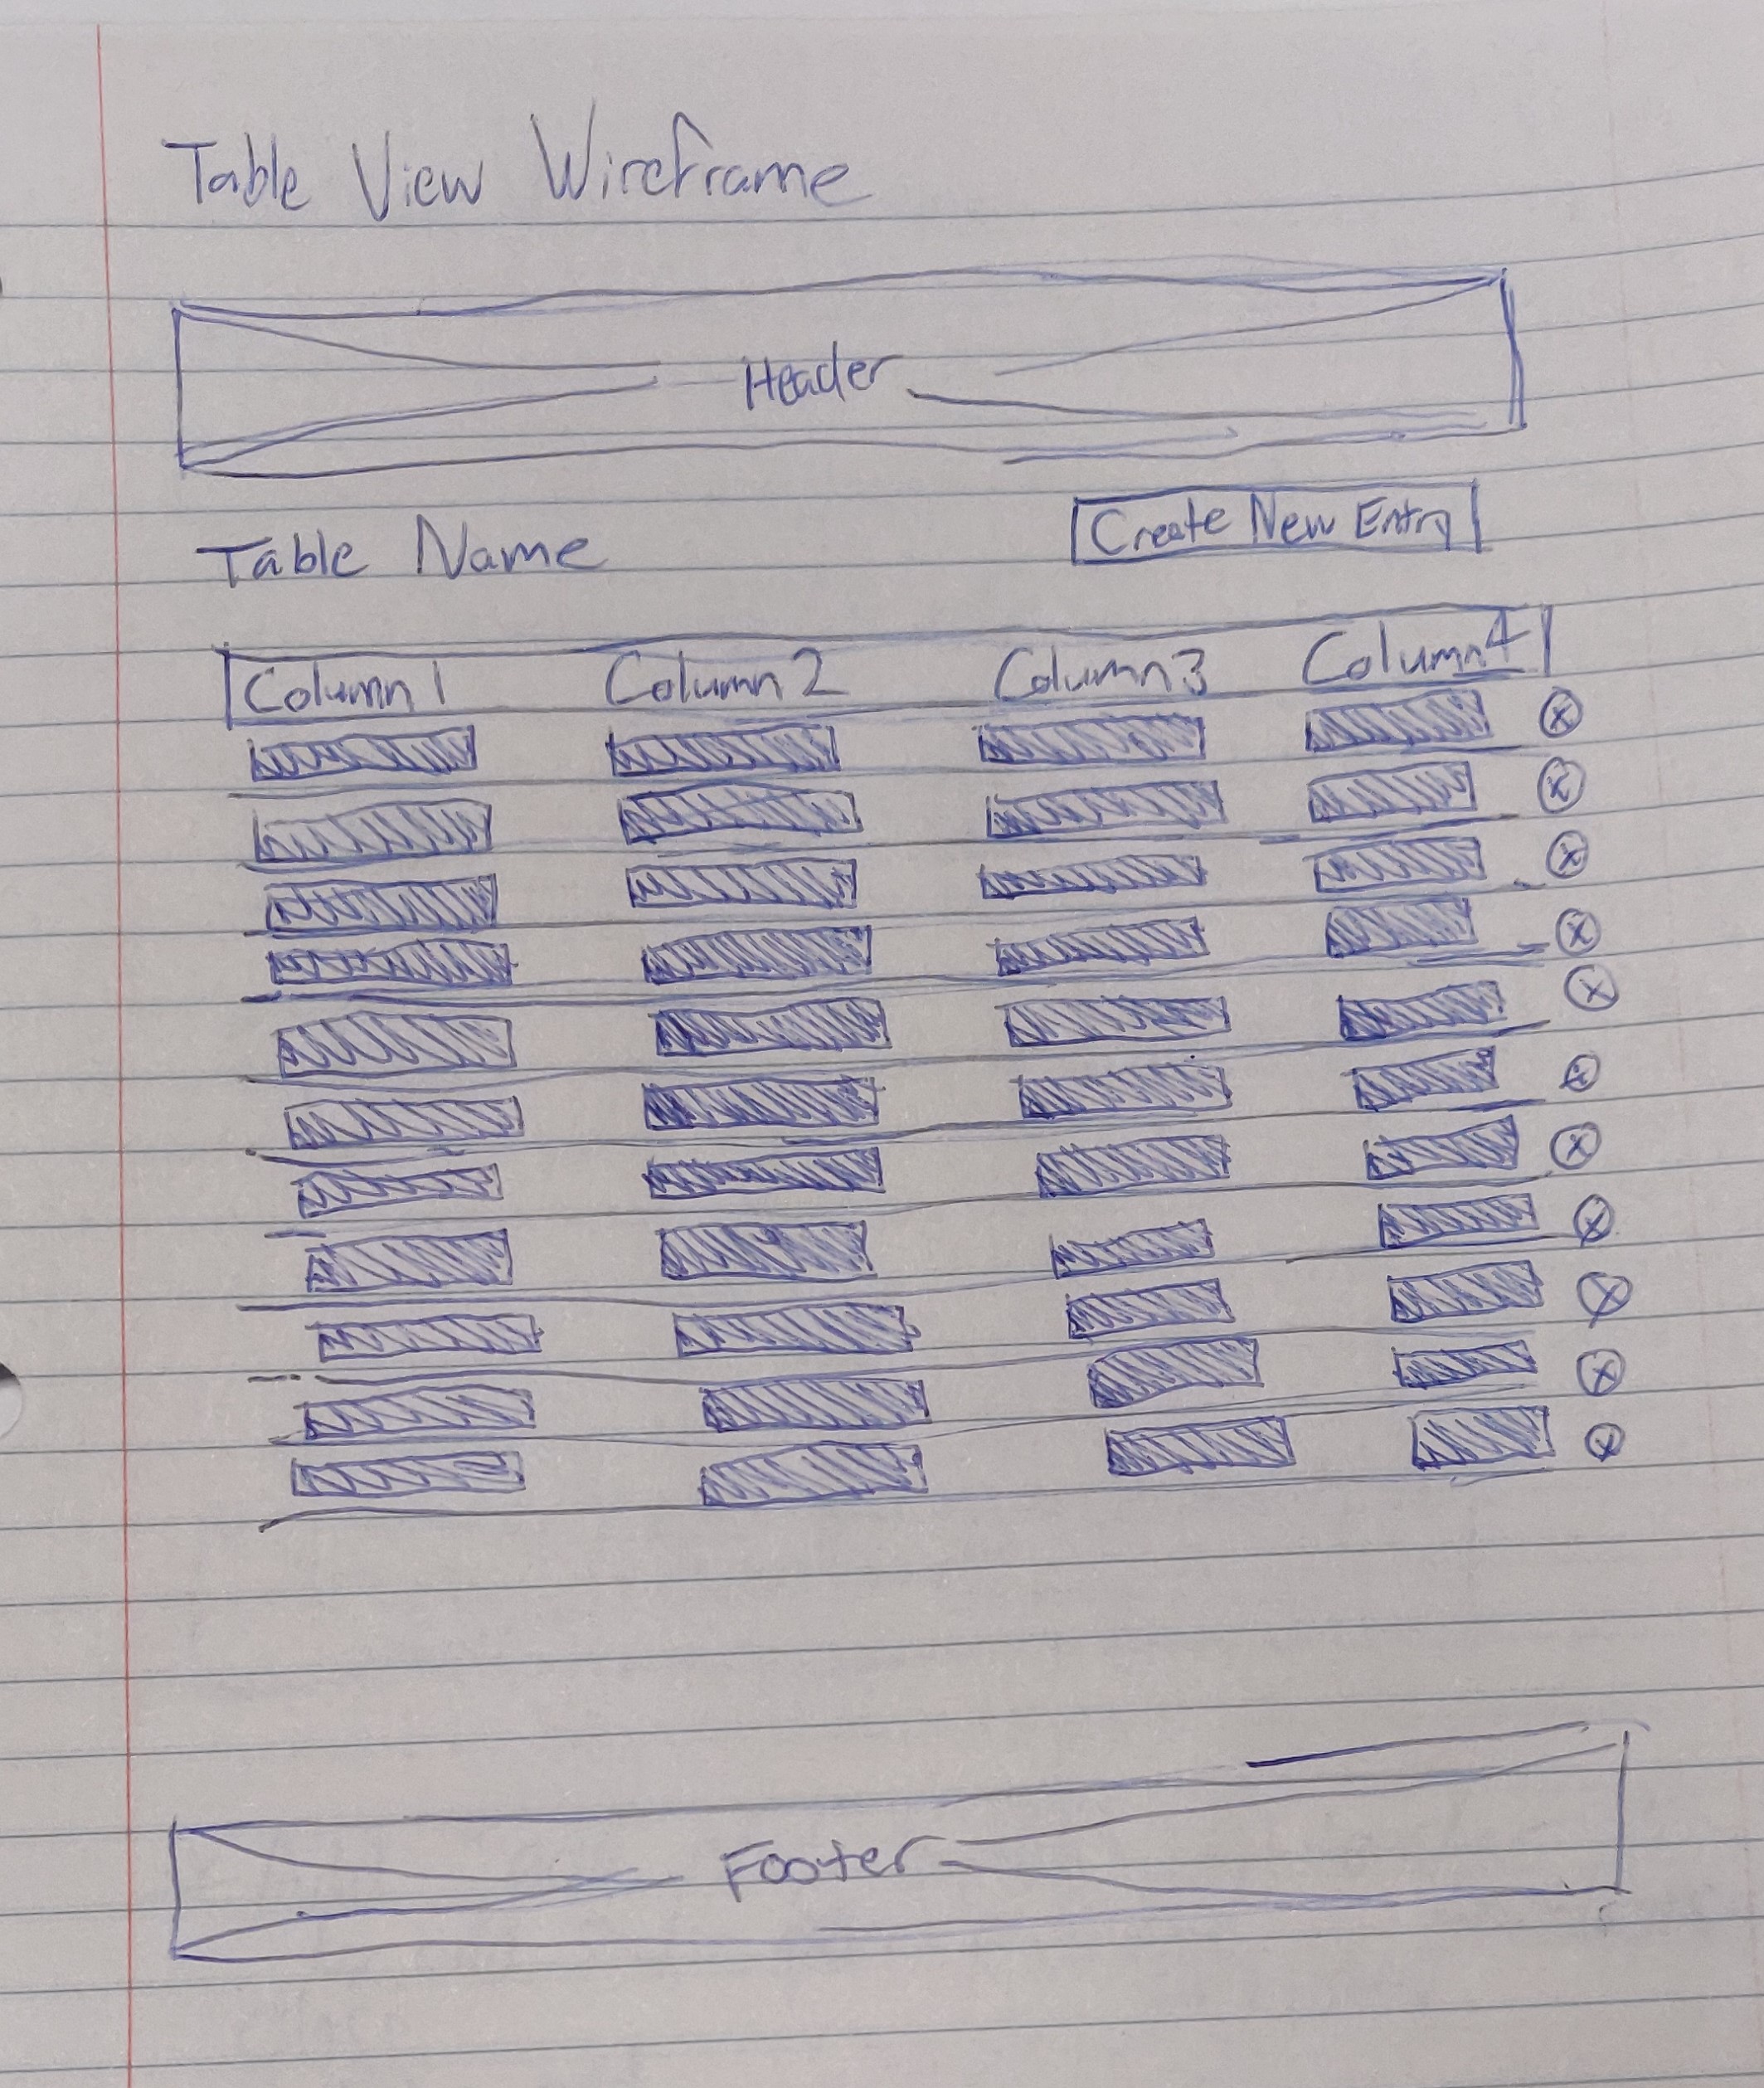 Table View Wireframe
Header
Table Name Create New Entry
Column 1 Column 2 Column 3 Column 4
Footer